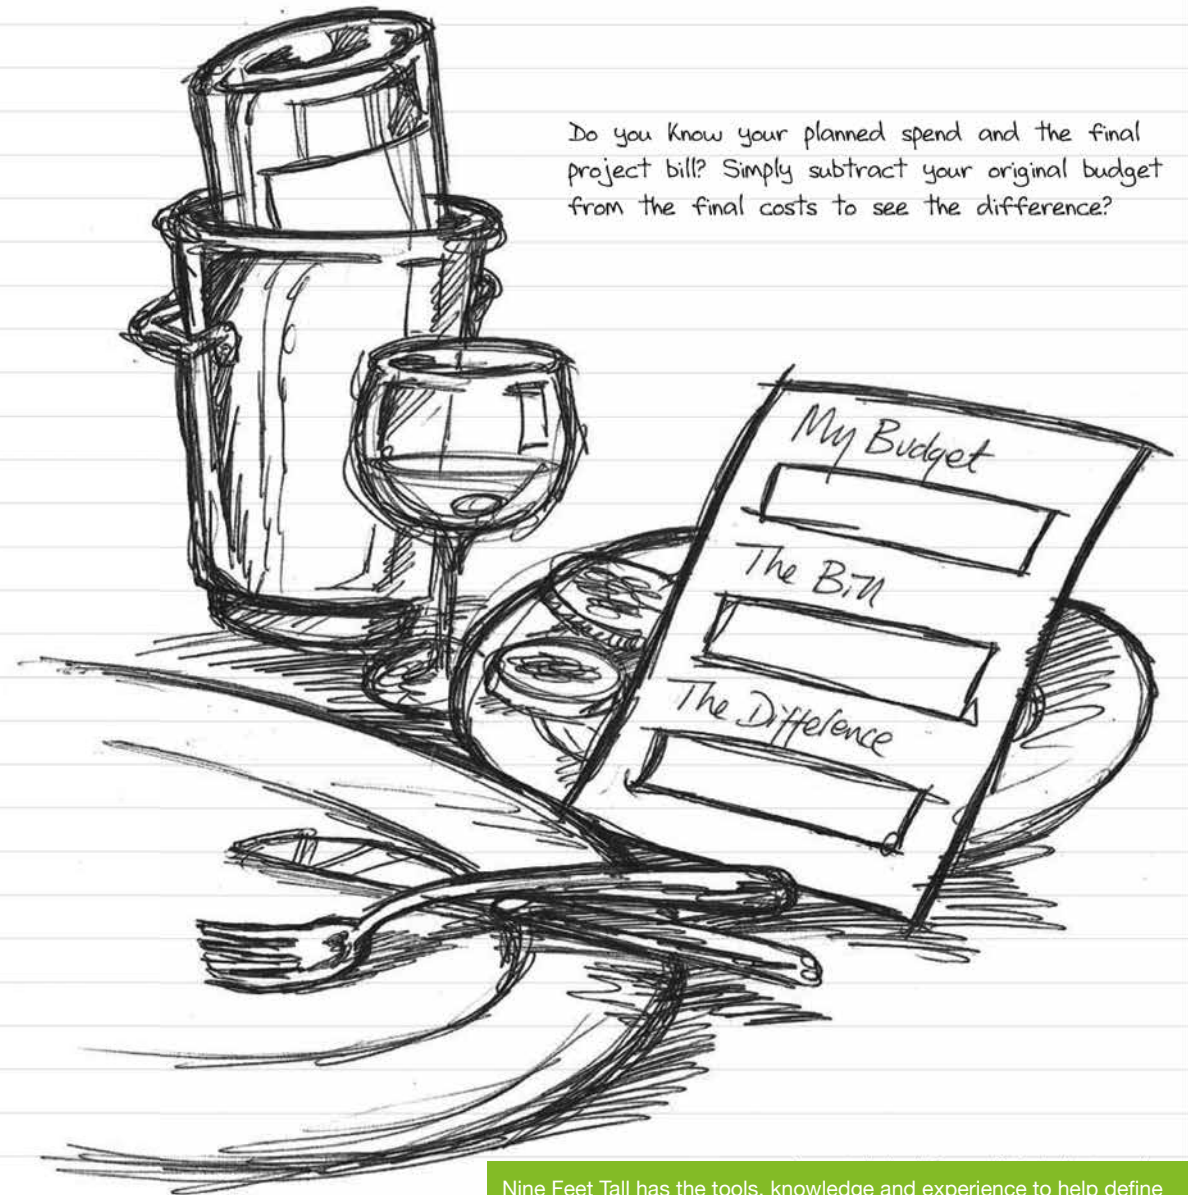 Do you know your planned spend and the final
project bill? Simply subtract your original budget
from the final costs to see the difference?
My Budget
The Bill
The Difference
Nine Feet Tall has the tools, knowledge and experience to help define